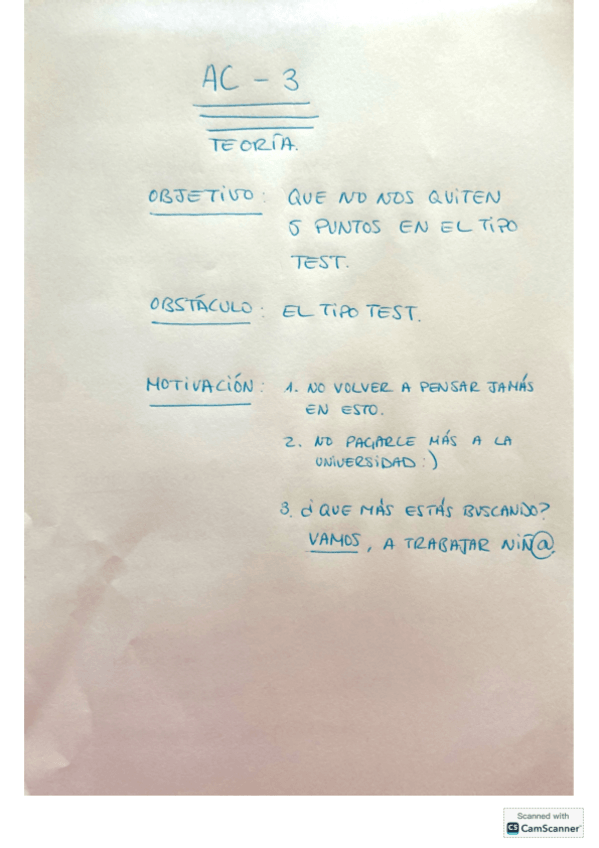 AC - 3
TEORÍA.
OBJETIVO: QUE NO NOS QUITEN
5 PUNTOS EN EL TIPO
TEST.
OBSTÁCULO: EL TIPO TEST.
MOTIVACIÓN: 1. NO VOLVER A PENSAR JAMÁS
EN ESTO.
2. NO PAGARLE MÁS A LA
UNIVERSIDAD :)
3. ¿QUE MÁS ESTÁS BUSCANDO?
VAMOS, A TRABAJAR NIÑ@.
Scanned with
CS CamScanner